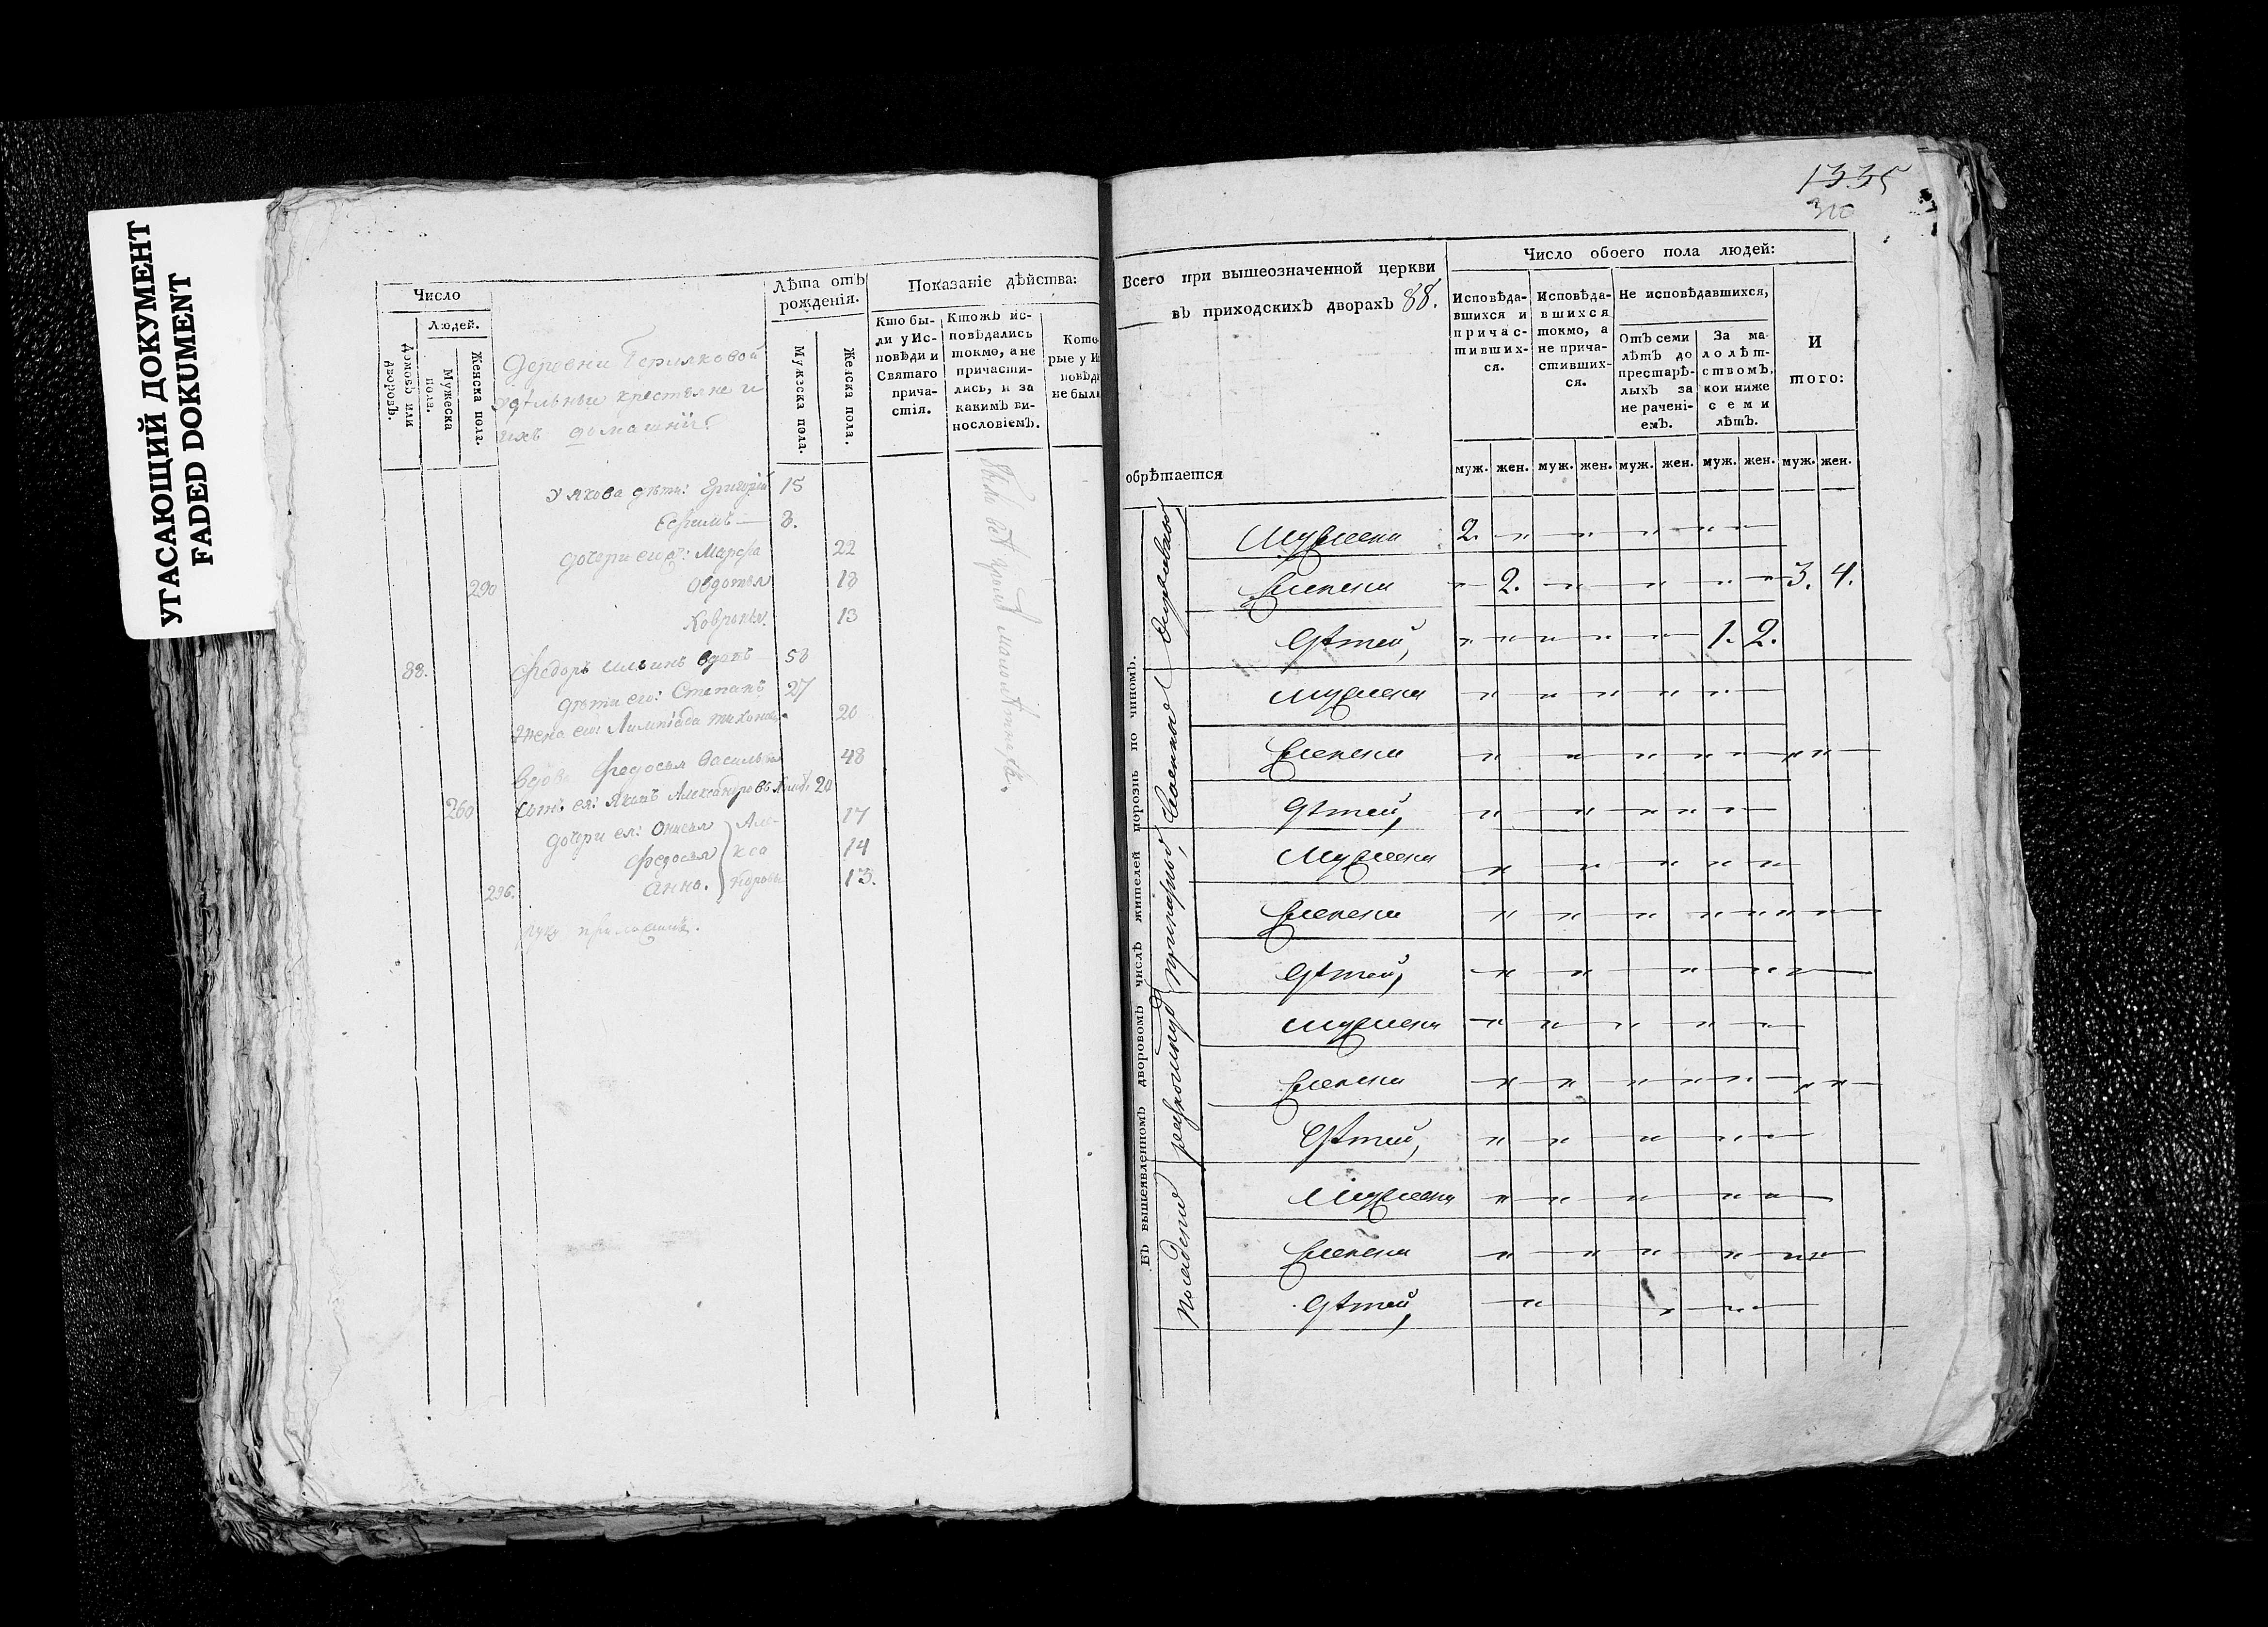 УГАСАЮЩИЙ ДОКУМЕНТ
FADED DOKUMENT
Число
Людей.
Домовъ или дворовъ.
Мужеска пола.
Женска пола.
Деревни
удѣльныи крестьяне и
ихъ домашнїе
Лѣта отъ рожденїя.
Мужеска пола.
Женска пола.
Показанїе дѣйства:
Кто бы-
ли у Ис-
повѣди и
Святаго
прича-
стїя.
Ктожъ ис-
повѣдались
токмо, а не
причасти-
лись, и за
какимъ ви-
нословїемъ.
Кото
рые у И
повѣд
не был
У Якова дѣти: Григорїй 15
Ефимъ — 8.
дочери его: Марфа 22
290 Овдотья 18
Ховронья. 13
88. Федоръ Ильинъ вдовъ 58
дѣти его: Степанъ 27
Жена его: Лимпїада Тихонова 20
Вдова Федосья Васильева 48
260 Сынъ ея: Яковъ Александровъ 20
дочери ея: Онисья 17
Федосья 14
296. Анна. 13.
1335
310
Всего при вышеозначенной церкви
въ приходскихъ дворахъ 88.
обрѣтается
Число обоего пола людей:
Исповѣда-
вшихся и
причас-
тивших-
ся.
Исповѣда-
вшихся
токмо, а
не прича-
стивших-
ся.
Не исповѣдавшихся,
Отъ семи
лѣтъ до
престарѣ-
лыхъ за
не раченї-
емъ.
За ма-
лолѣт-
ствомъ,
кои ниже
семи
лѣтъ.
И
того:
муж. жен. муж. жен. муж. жен. муж. жен. муж. жен.
Въ вышеявленномъ дворовомъ числѣ жителей порознь по чиномъ.
Духовныхъ
Мужеска 2. " " " " "
Женска " 2. " " " " 3. 4.
Дѣтей, " " " " " 1. 2.
Военныхъ
Мужеска " " " " "
Женска " " " " " " "
Дѣтей, " " " " "
приказныхъ,
Мужеска " " " " "
Женска " " " " " " "
Дѣтей, " " " " "
Мужеска " " " " "
Женска " " " " " " "
Дѣтей, " " " " "
Посадскихъ
Мужеска " " " " "
Женска " " " " " "
Дѣтей, " " " "